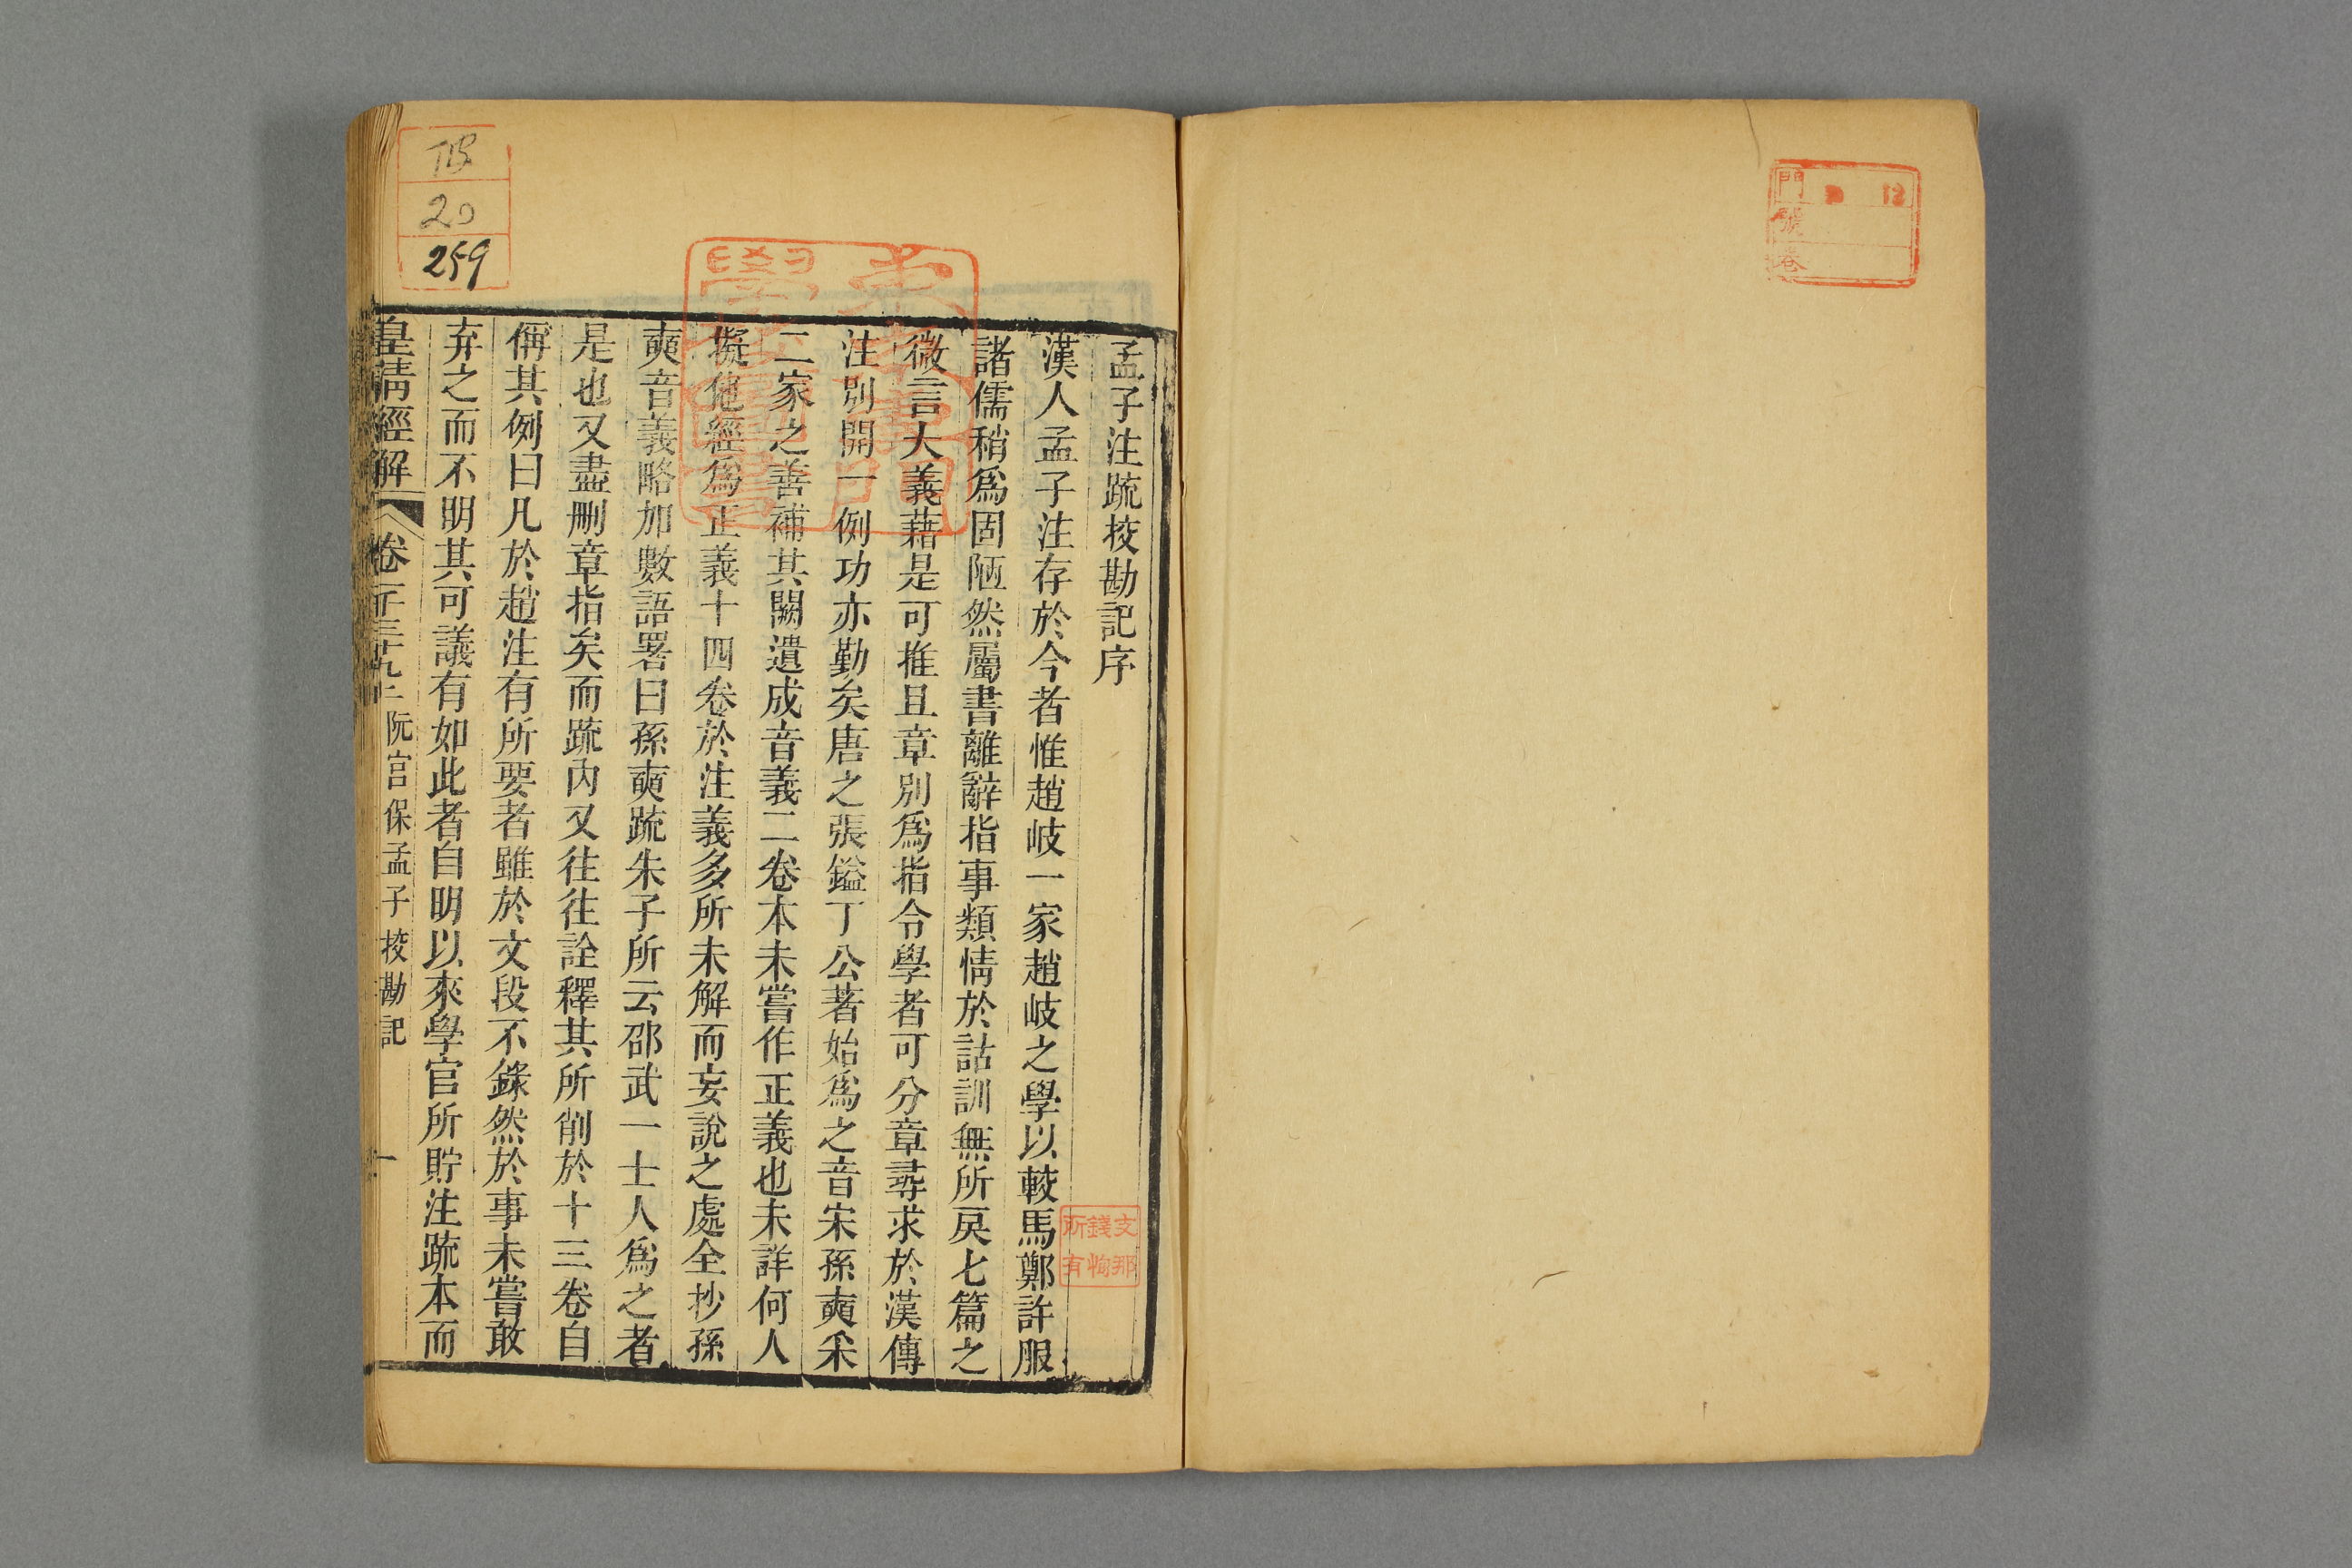 門
號
巻
孟子注疏挍勘記序
漢人孟子注存於今者惟趙岐一家趙岐之學以較馬鄭許服
諸儒稍爲固陋然屬書離辭指事類情於詁訓無所戾七篇之
微言大義藉是可推且章別爲指令學者可分章尋求於漢傳
注別開一例功亦勤矣唐之張鎰丁公著始爲之音宋孫奭采
二家之善補其闕遺成音義二卷本未嘗作正義也未詳何人
擬他經爲正義十四卷於注義多所未解而妄說之處全抄孫
奭音義略加數語署曰孫奭疏朱子所云邵武一士人爲之者
是也又盡刪章指矣而疏內又往往詮釋其所削於十三卷自
偁其例曰凡於趙注有所要者雖於文段不錄然於事未嘗敢
弃之而不明其可議有如此者自明以來學官所貯注疏本而
皇清經解 卷一千三十九上 阮宮保孟子挍勘記 一
支那
錢恂
所有
TB
20
259